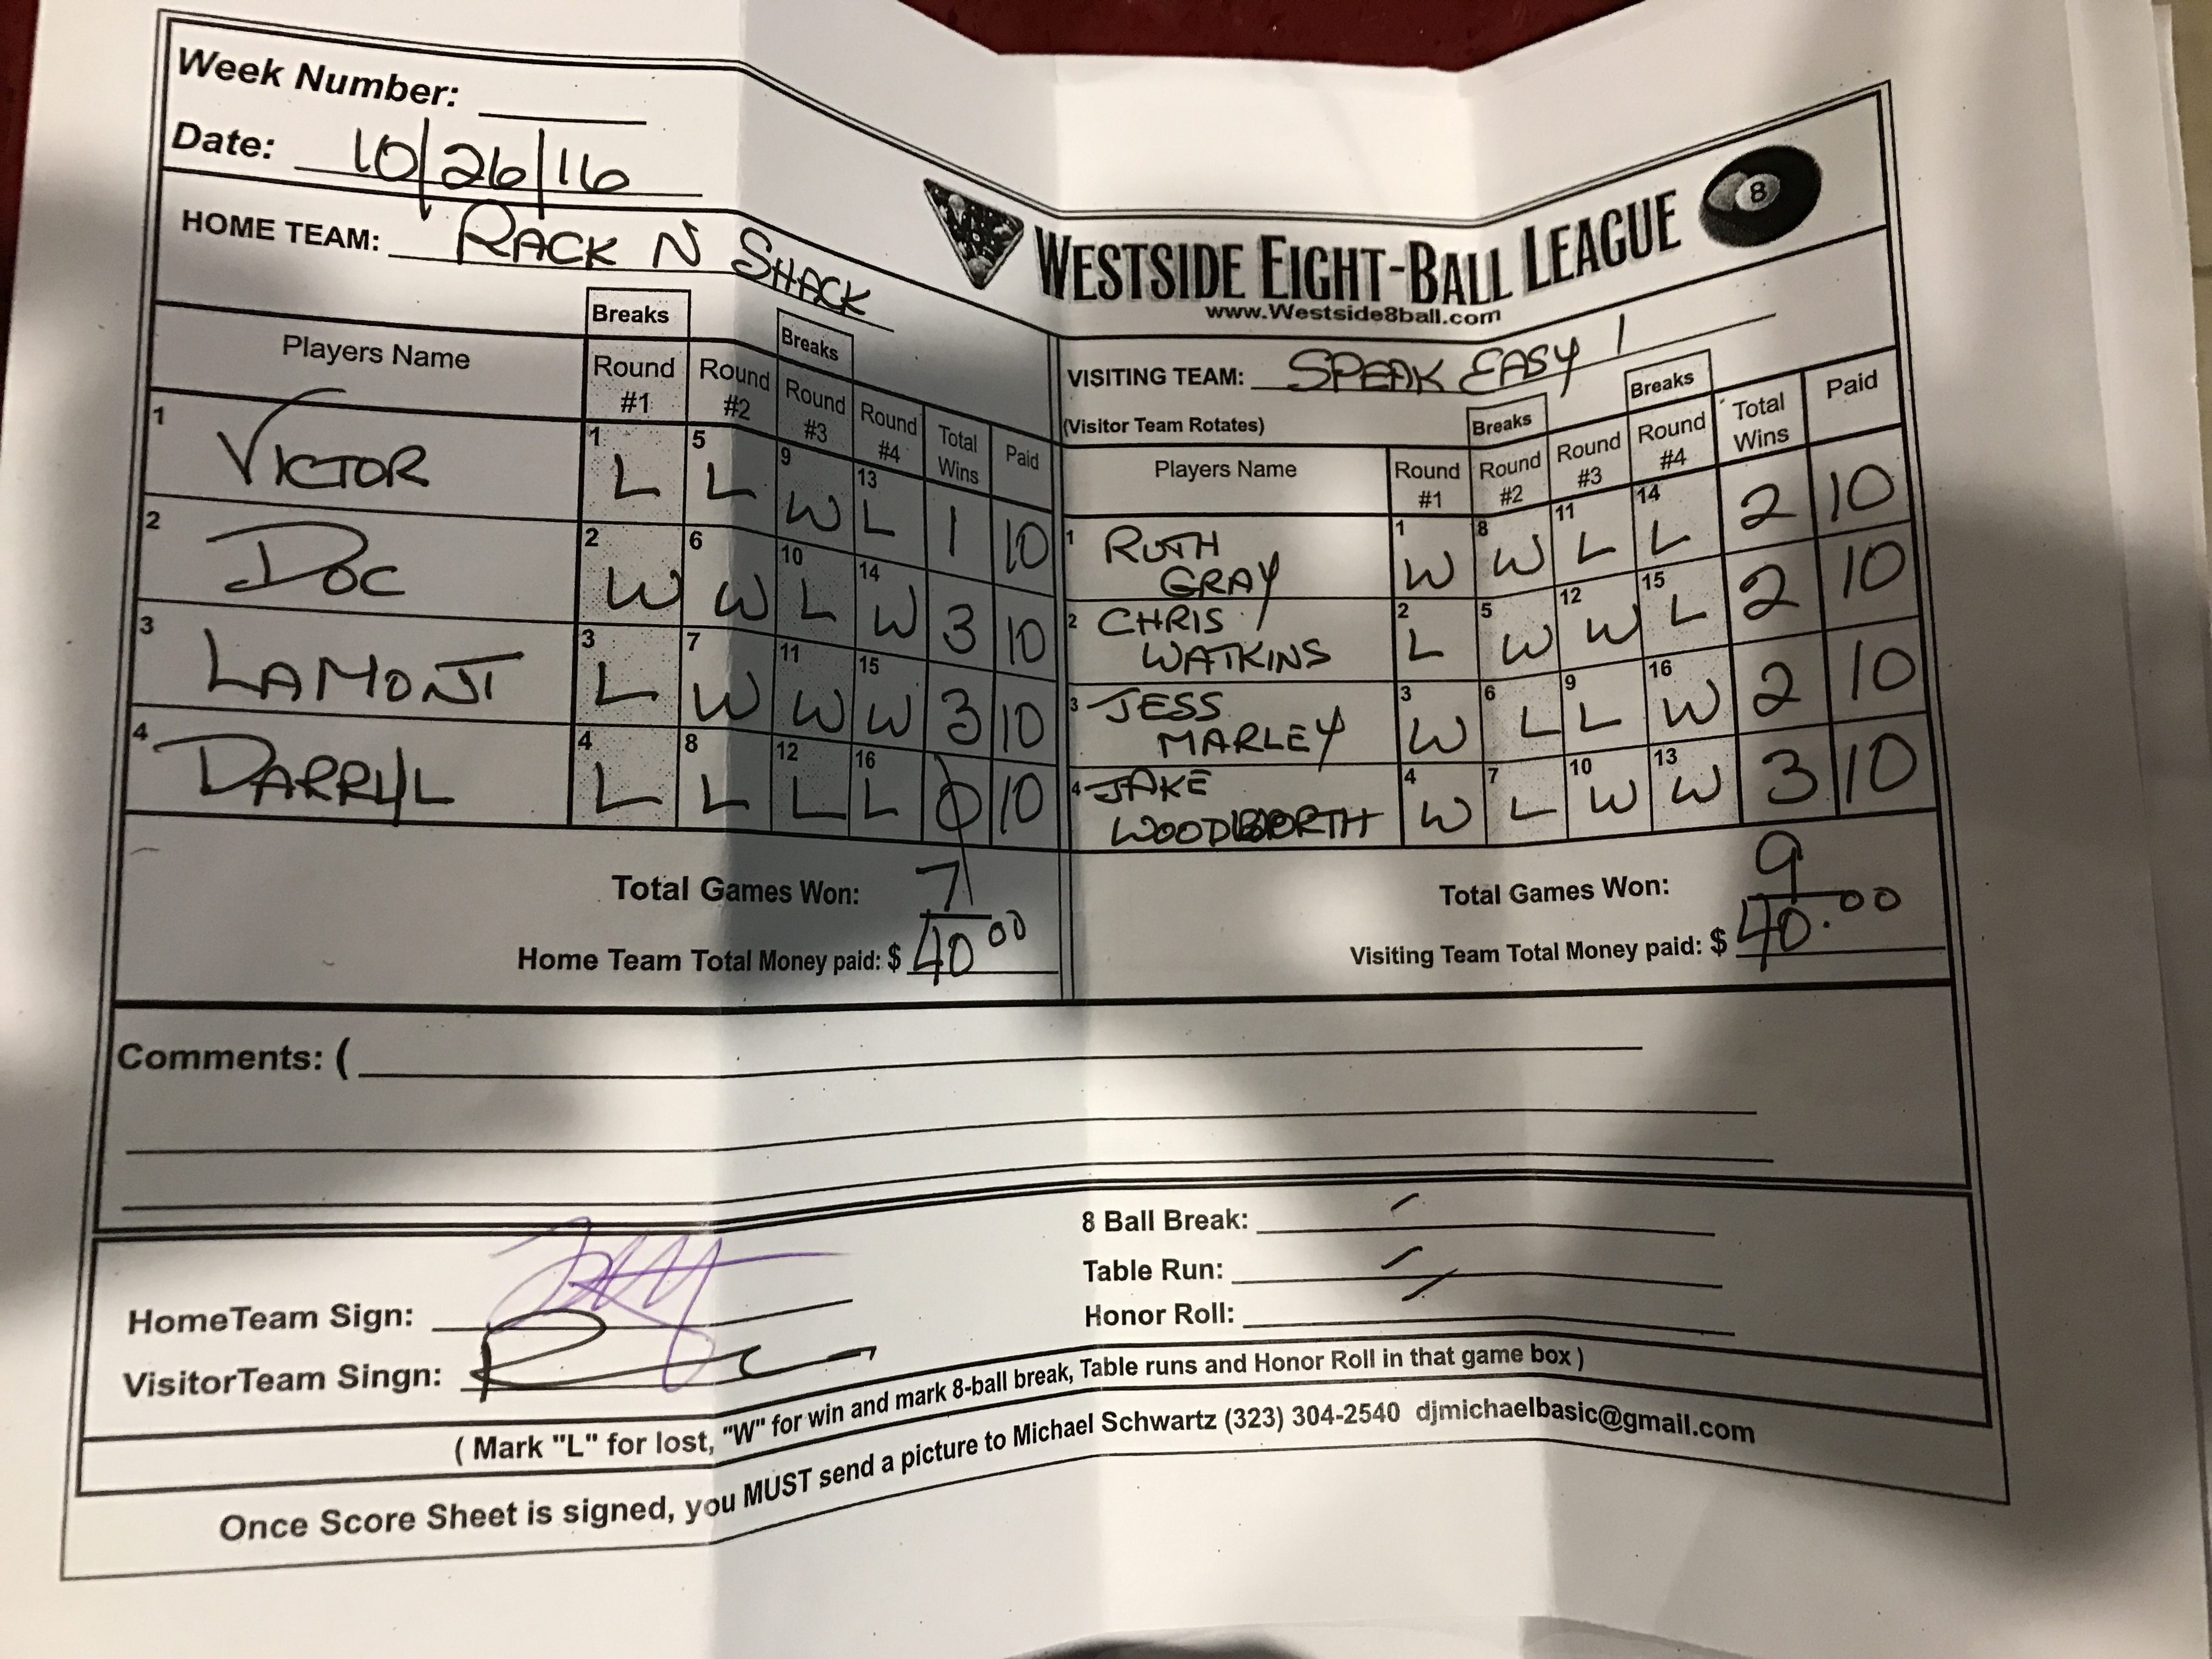 Week Number:
Date: 10/26/16
HOME TEAM: RACK N SHACK
WESTSIDE EIGHT-BALL LEAGUE
8
www.Westside8ball.com
Breaks Breaks
Players Name Round #1 Round #2 Round #3 Round #4 Total Wins Paid
1 VICTOR 1 L 5 L 9 W 13 L 1 10
2 DOC 2 W 6 W 10 L 14 W 3 10
3 LAMONT 3 L 7 W 11 W 15 W 3 10
4 DARRYL 4 L 8 L 12 L 16 L 0 10
Total Games Won: 7
Home Team Total Money paid: $ 40 00
VISITING TEAM: SPEAK EASY 1
(Visitor Team Rotates)
Breaks Breaks
Players Name Round #1 Round #2 Round #3 Round #4 Total Wins Paid
1 RUTH GRAY 1 W 8 W 11 L 14 L 2 10
2 CHRIS WATKINS 2 L 5 W 12 W 15 L 2 10
3 JESS MARLEY 3 W 6 L 9 L 16 W 2 10
4 JAKE 4 W 7 L 10 W 13 W 3 10
Total Games Won: 9
Visiting Team Total Money paid: $ 40.00
Comments: (
8 Ball Break:
Table Run:
Honor Roll:
HomeTeam Sign:
VisitorTeam Singn:
( Mark "L" for lost, "W" for win and mark 8-ball break, Table runs and Honor Roll in that game box )
Once Score Sheet is signed, you MUST send a picture to Michael Schwartz (323) 304-2540 djmichaelbasic@gmail.com